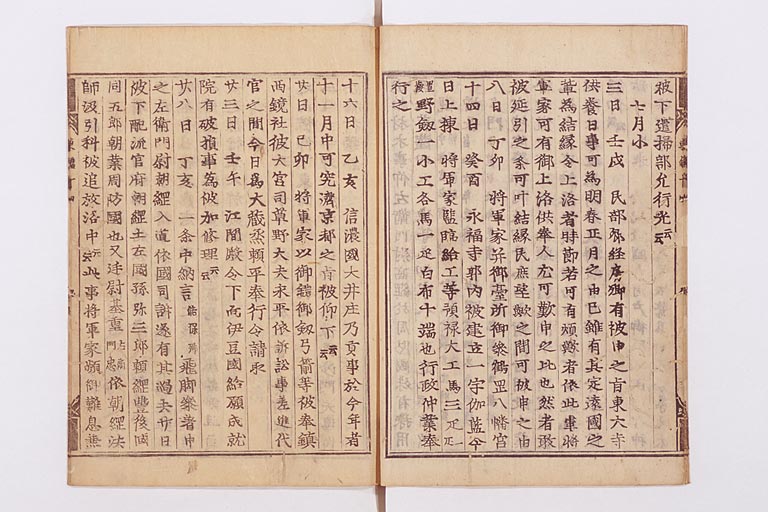 被下遣掃部允行光云云
七月小
三日 壬戌 民部卿経房卿有被申之旨東大寺
供養日事可為明春正月之由已雖有其定遠國之
輩為結縁令上洛者時節若可有煩歟者依此事将
軍家可有御上洛供奉人尤可歎申之比也然者被
被延引之条可叶結縁民庶望歟之間可被申之由
八日 丁卯 将軍家并御臺所御参鶴罡八幡宮
十四日 癸酉 永福寺郭内被建立一宇伽藍今
日上棟 将軍家監臨給工等預禄大工馬三疋一疋
置鞍野釼一小工各馬一疋白布十端也行政仲業奉
行之
十六日 乙亥 信濃國大井庄乃貢事於今年者
十一月中可究済京都之旨被仰下云云
廿日 己卯 将軍家以御鏡御釼弓箭等被奉鎮
西鏡社彼大宮司草野大夫永平依訴訟事差進代
官之間今日為大蔵丞頼平奉行令請取
廿三日 壬午 江間殿令下向伊豆國給願成就
院有破損事為被加修理云云
廿八日 丁亥 一条中納言能保卿飛脚参着申
之左衛門尉朝経入道依國司訴遂有其過去廿日
被下配流官府朝経土左國孫弥三郎頼経豊後國
同五郎朝業周防國也又廷尉基重右衛門志依朝経法
師汲引科被追放洛中云云此事将軍家頗御難息無